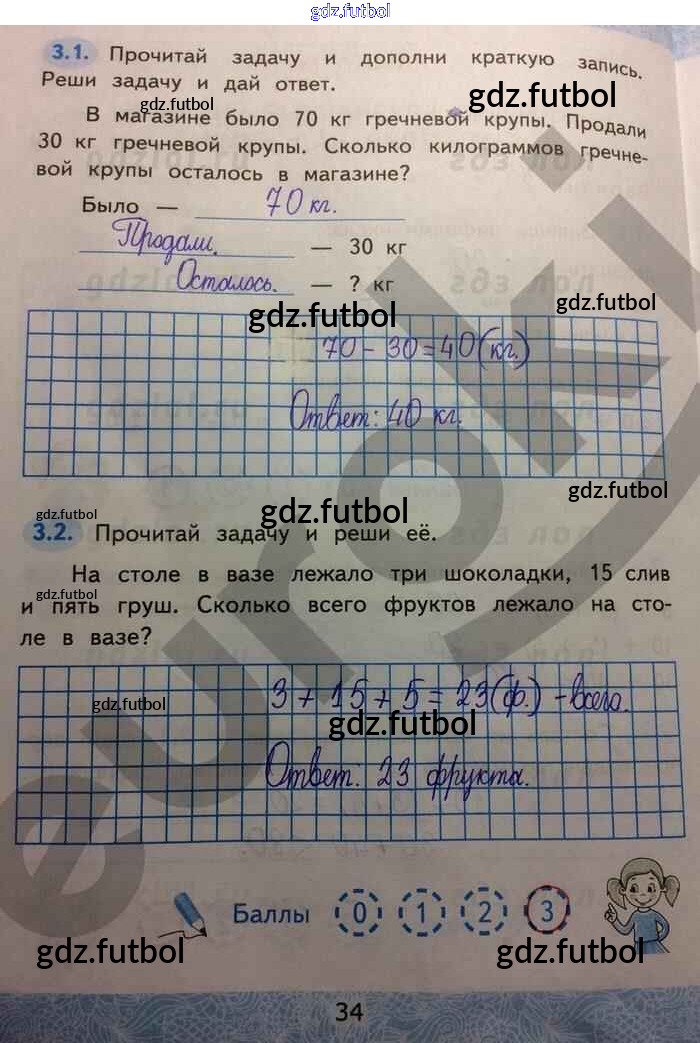 gdz.futbol
3.1. Прочитай задачу и дополни краткую запись.
Реши задачу и дай ответ.
gdz.futbol
gdz.futbol
В магазине было 70 кг гречневой крупы. Продали
30 кг гречневой крупы. Сколько килограммов гречне-
вой крупы осталось в магазине?
Было — 70 кг.
Продали. — 30 кг
Осталось. — ? кг
gdz.futbol
gdz.futbol
70 - 30 = 40 (кг.)
Ответ: 40 кг.
gdz.futbol
gdz.futbol
gdz.futbol
3.2. Прочитай задачу и реши её.
На столе в вазе лежало три шоколадки, 15 слив
gdz.futbol
и пять груш. Сколько всего фруктов лежало на сто-
ле в вазе?
3 + 15 + 5 = 23 (ф.) - всего.
gdz.futbol
gdz.futbol
Ответ: 23 фрукта.
Баллы 0 1 2 3
gdz.futbol
gdz.futbol
34
euroki